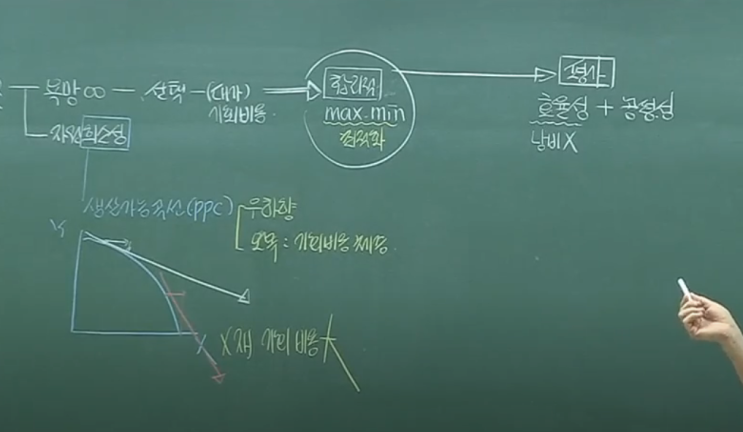 욕망 ∞ — 선택 — (대가)
기회비용
합리적
max. min
최적화
평가
효율성 + 공정성
낭비X
자원희소성
생산가능곡선(PPC)
우하향
오목 : 기회비용 체증
Y
X
X재 기회비용